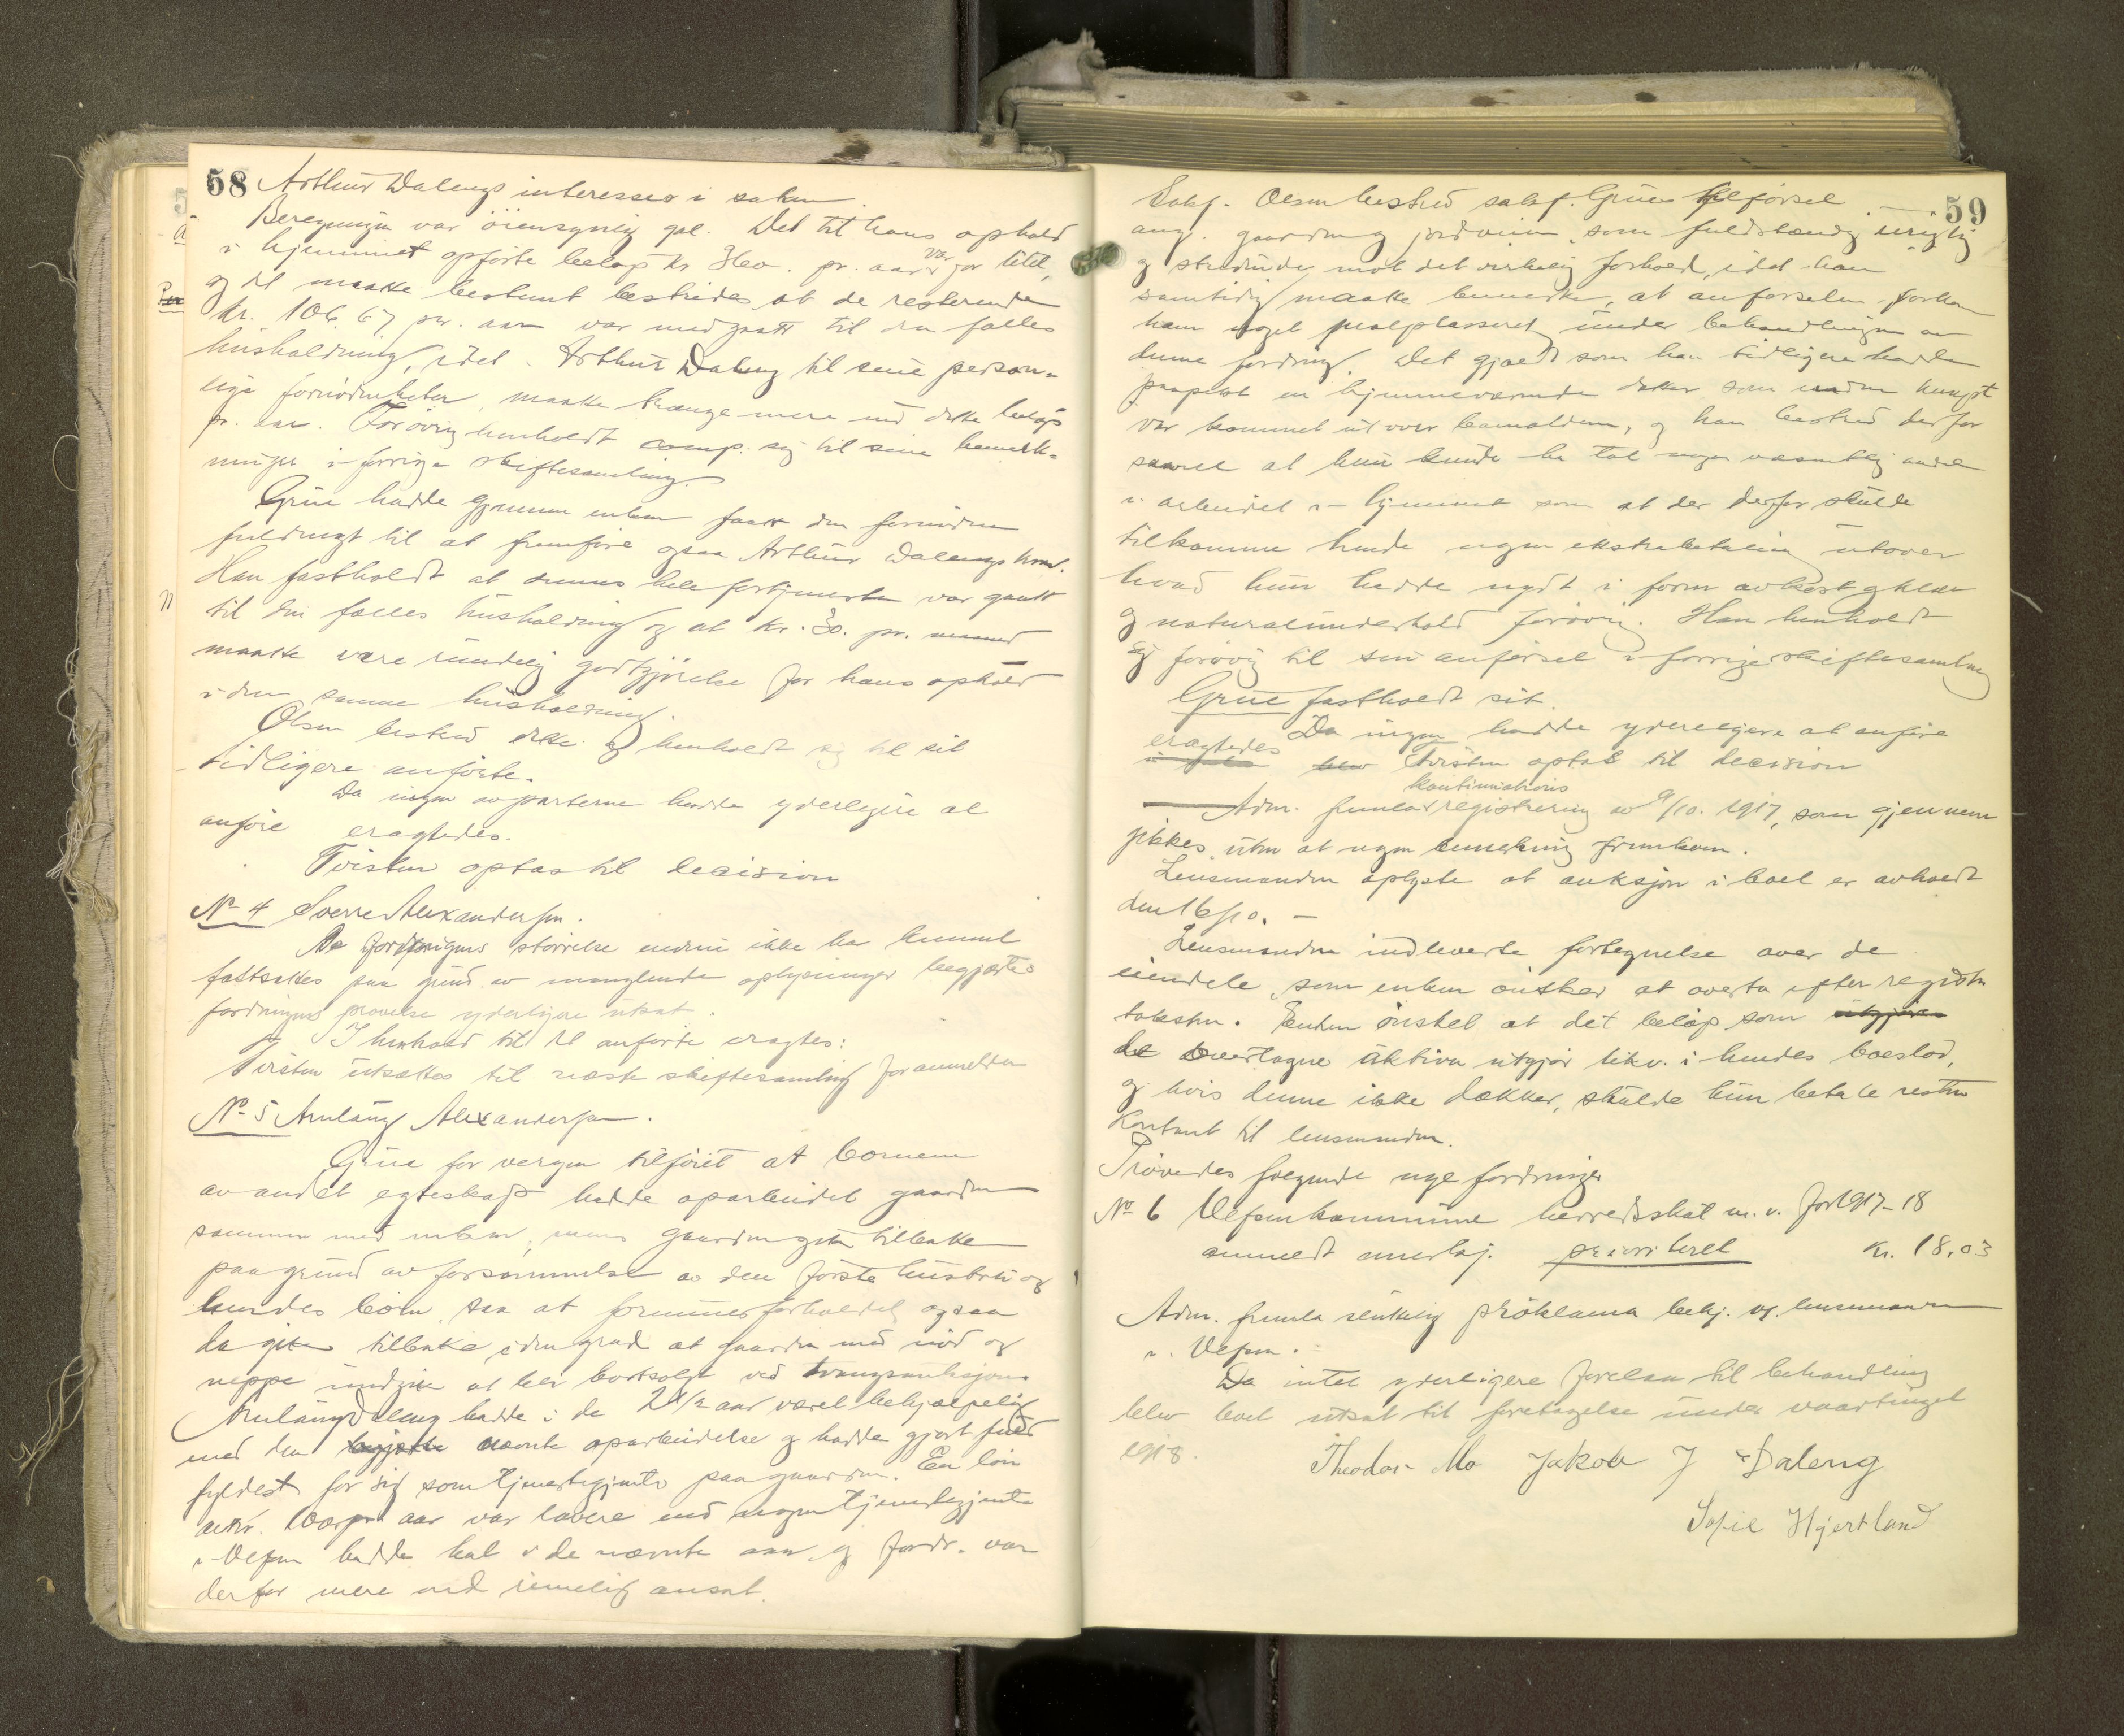 58
Arthur Dalengs interesser i saken.
Beregningen var öiensynlig gal. Det til hans ophold
i hjemmet opförte belöp kr. pr. aar var for litet,
og det maatte bestemt bestrides at de resterende
kr. 106.67 pr. aar var medgaatt til den fælles
husholdning, idet Arthur Daleng til sine person=
lige fornödenheter maatte trænge mere end dette belöp
pr. aar. Forövrig henholdt comp. sig til sine bemerk=
ninger i forrige skiftesamling.
Grüe hadde gjennem enken faatt den fornödne
fuldmagt til at fremföre ogsaa Arthur Dalengs krav.
Han fastholdt at dennes hele fortjeneste var gaatt
til den fælles husholdning og at kr. 30. pr. maaned
maatte være rundelig godtgjörelse for hans ophold
i den samme husholdning.
Olsen bestred dette og henholdt sig til sit
tidligere anförte.
Da ingen av parterne hadde yderligere at
anföre eragtedes.
Tvisten optas til decision
No 4 Sverre Alexandersen.
Da fordringens störrelse endnu ikke har kunnet
fastsættes paa grund av manglende oplysninger begjærtes
fordringens prövelse yderligere utsat.
I henhold til det anförte eragtes:
Tvisten utsættes til næste skiftesamling for anmelderen
No 5 Amlaug Alexandersen.
Grüe for vergen tilföiet at börnene
av andet egteskap hadde oparbeidet gaarden
sammen med enken, mens gaarden gik tilbake
paa grund av forsömmelse av den förste hustru og
hendes börn saa at formuesforholdet ogsaa
da gik tilbake i den grad at gaarden med nöd og
neppe undgik at blev bortsolgt ved tvangsauksjon.
Amlaug Daleng hadde i de 2 1/2 aar været behjælpelig
med den nævnte oparbeidelse og hadde gjort fuld
fyldest for sig som tjenestepjente paa gaarden. En lön
av kr. 100 pr. aar var lavere end nogen tjenestepjente
i Vefsn hadde hat i de nævnte aar og fordr. var
derfor mere end rimelig ansat.
59
Sakf. Olsen bestred sakf. Grües tilförsel
ang. gaarden og jordveien som fuldstændig urigtig
og stridende mot det virkelige forhold, idet han
samtidig maatte bemerke, at anförselen forkom
ham noget malplasseret under behandlingen av
denne fordring. Det gjældt som han tidligere hadde
paapekt en hjemmeværende datter som endnu knapt
var kommet ut over barnealderen, og han bestred derfor
saavel at hun kunde ha tat nogen væsentlig andel
i arbeidet i hjemmet som at der derfor skulde
tilkomme hende nogen ekstrabetaling utover
hvad hun hadde nydt i form av kost og klær
og naturalunderhold forövrig. Han henholdt
sig forövrig til sin anförsel i forrige skiftesamling
Grüe fastholdt sit.
Da ingen hadde yderligere at anföre
eragtedes
blev tvisten optat til decision
kontinuations
Adm. fremla registrering av 9/10. 1917, som gjennem
gikkes uten at nogen bemerkning fremkom.
Lensmanden oplyste at auksjon i boet er avholdt
den 16/10. –
Lensmanden indleverte fortegnelse over de
eiendele som enken önsker at overta efter registr.
taksten. Enken önsket at det belöp som utgjöres
de overtagne aktiva utgjör likv. i hendes boeslod,
og hvis denne ikke dækker, skulde hun betale resten
kontant til lensmanden.
Prövedes fölgende nye fordringer
No 6 Vefsn kommune herredsskat m. v. for 1917-18
anmeldt prioriteret kr. 18,03
Adm. fremla proklama bekj. av lensmanden
i Vefsn.
Da intet yderligere forelaa til behandling
blev boet utsat til foretagelse under vaartinget
1918.
Theodor Mo Jakob J Daleng
Sofie Hjertland